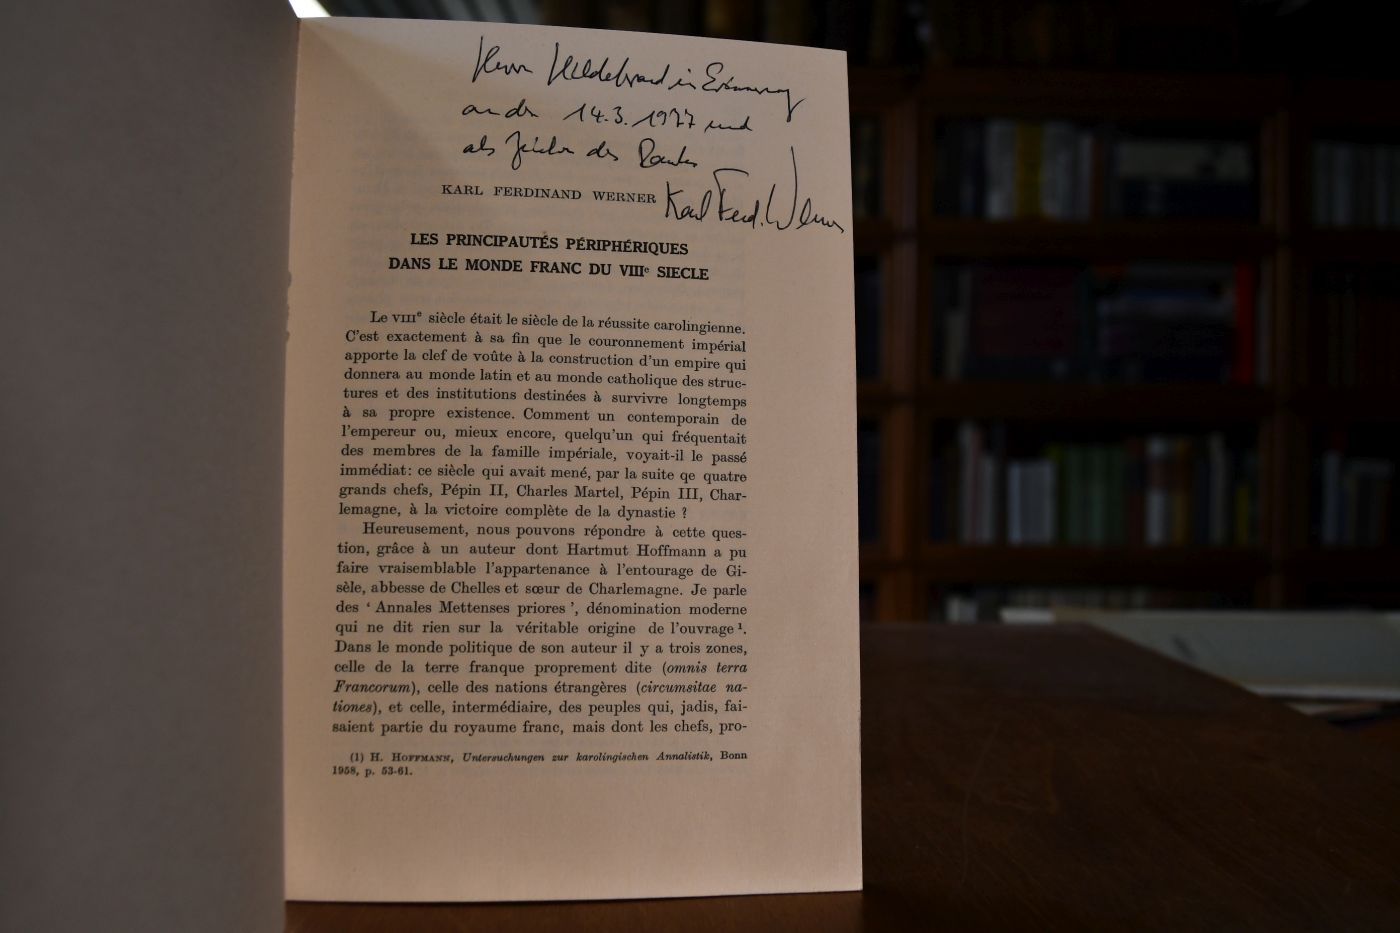 Herrn Hildebrand in Erinnerung
an den 14.3.1977 und
als Zeichen des Dankes
Karl Ferd. Werner
KARL FERDINAND WERNER
LES PRINCIPAUTÉS PÉRIPHÉRIQUES
DANS LE MONDE FRANC DU VIIIe SIECLE
Le VIIIe siècle était le siècle de la réussite carolingienne.
C'est exactement à sa fin que le couronnement impérial
apporte la clef de voûte à la construction d'un empire qui
donnera au monde latin et au monde catholique des struc-
tures et des institutions destinées à survivre longtemps
à sa propre existence. Comment un contemporain de
l'empereur ou, mieux encore, quelqu'un qui fréquentait
des membres de la famille impériale, voyait-il le passé
immédiat: ce siècle qui avait mené, par la suite qe quatre
grands chefs, Pépin II, Charles Martel, Pépin III, Char-
lemagne, à la victoire complète de la dynastie ?
Heureusement, nous pouvons répondre à cette ques-
tion, grâce à un auteur dont Hartmut Hoffmann a pu
faire vraisemblable l'appartenance à l'entourage de Gi-
sèle, abbesse de Chelles et sœur de Charlemagne. Je parle
des ' Annales Mettenses priores ', dénomination moderne
qui ne dit rien sur la véritable origine de l'ouvrage ¹.
Dans le monde politique de son auteur il y a trois zones,
celle de la terre franque proprement dite (omnis terra
Francorum), celle des nations étrangères (circumsitae na-
tiones), et celle, intermédiaire, des peuples qui, jadis, fai-
saient partie du royaume franc, mais dont les chefs, pro-
(1) H. HOFFMANN, Untersuchungen zur karolingischen Annalistik, Bonn
1958, p. 53-61.